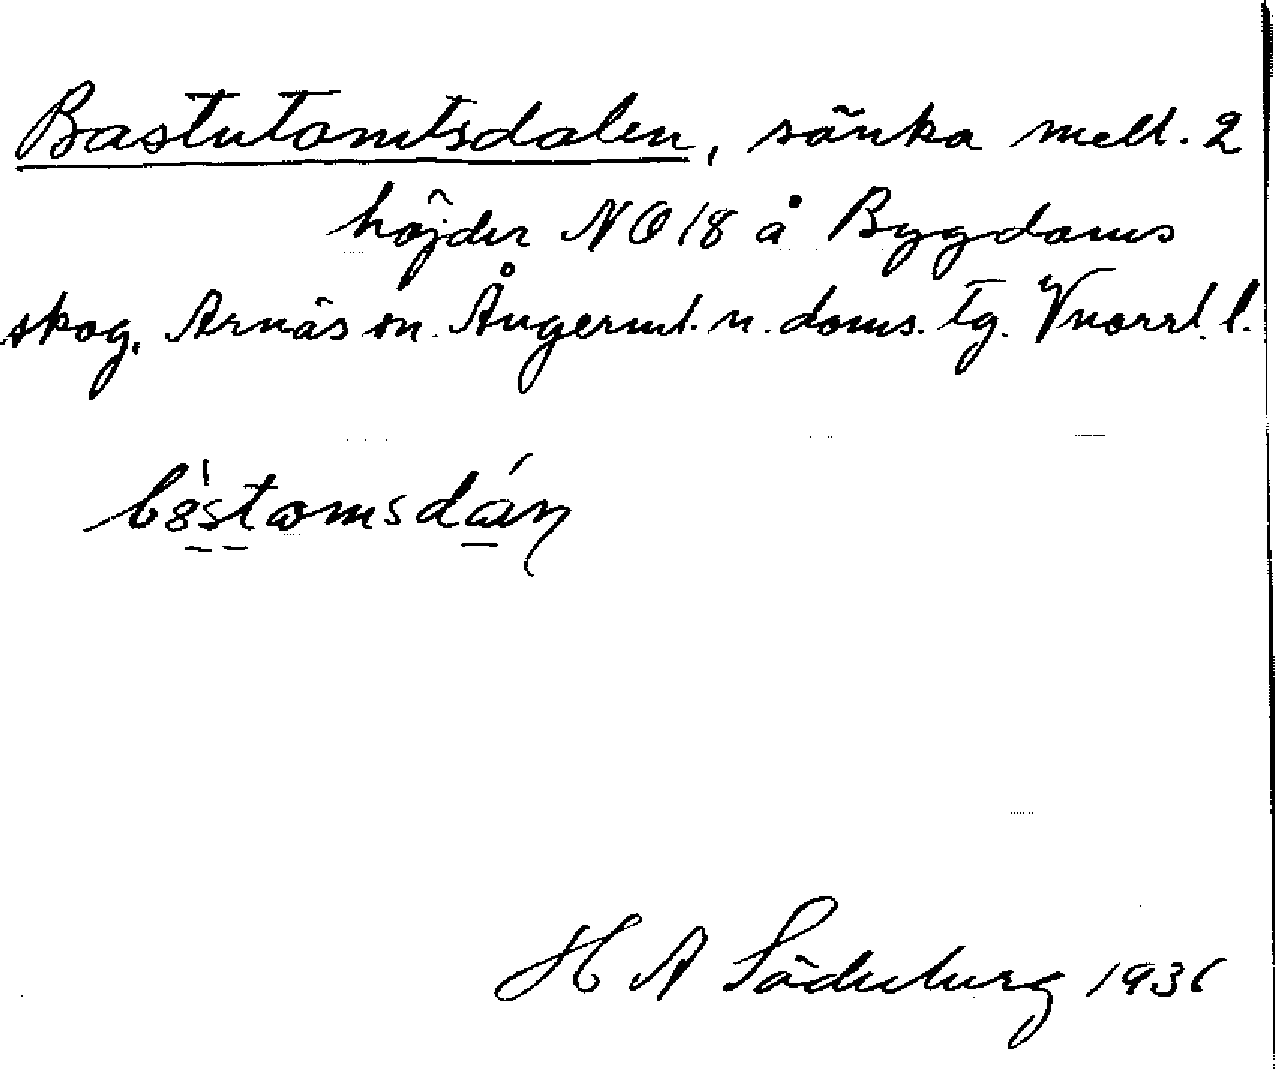 Bastutomtsdalen, sänka mell. 2
höjder NO 18 å Bygdoms
skog, Arnäs sn. Ångerml. n. doms. tg. Vnorrl l.
H A Söderberg 1936